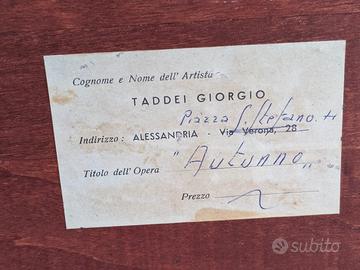 Cognome e Nome dell' Artista
TADDEI GIORGIO
Piazza S. Stefano
Indirizzo: ALESSANDRIA - Via Verona, 28
Titolo dell'Opera "Autunno"
Prezzo
subito